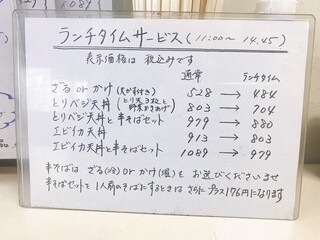 ランチタイムサービス (11:00〜14.45)
表示価格は 税込みです
通常 ランチタイム
ざる or かけ (天かす付き) 528 → 484
とりベジ天丼 (とり天3コと野菜かきあげ) 803 → 704
とりベジ天丼と半そばセット 979 → 880
エビイカ天丼 913 → 803
エビイカ天丼と半そばセット 1089 → 979
半そばは ざる(冷) or かけ(温) も お選びくださいませ
半そばセットを 1人前のそばにするときは さらに プラス176円になります